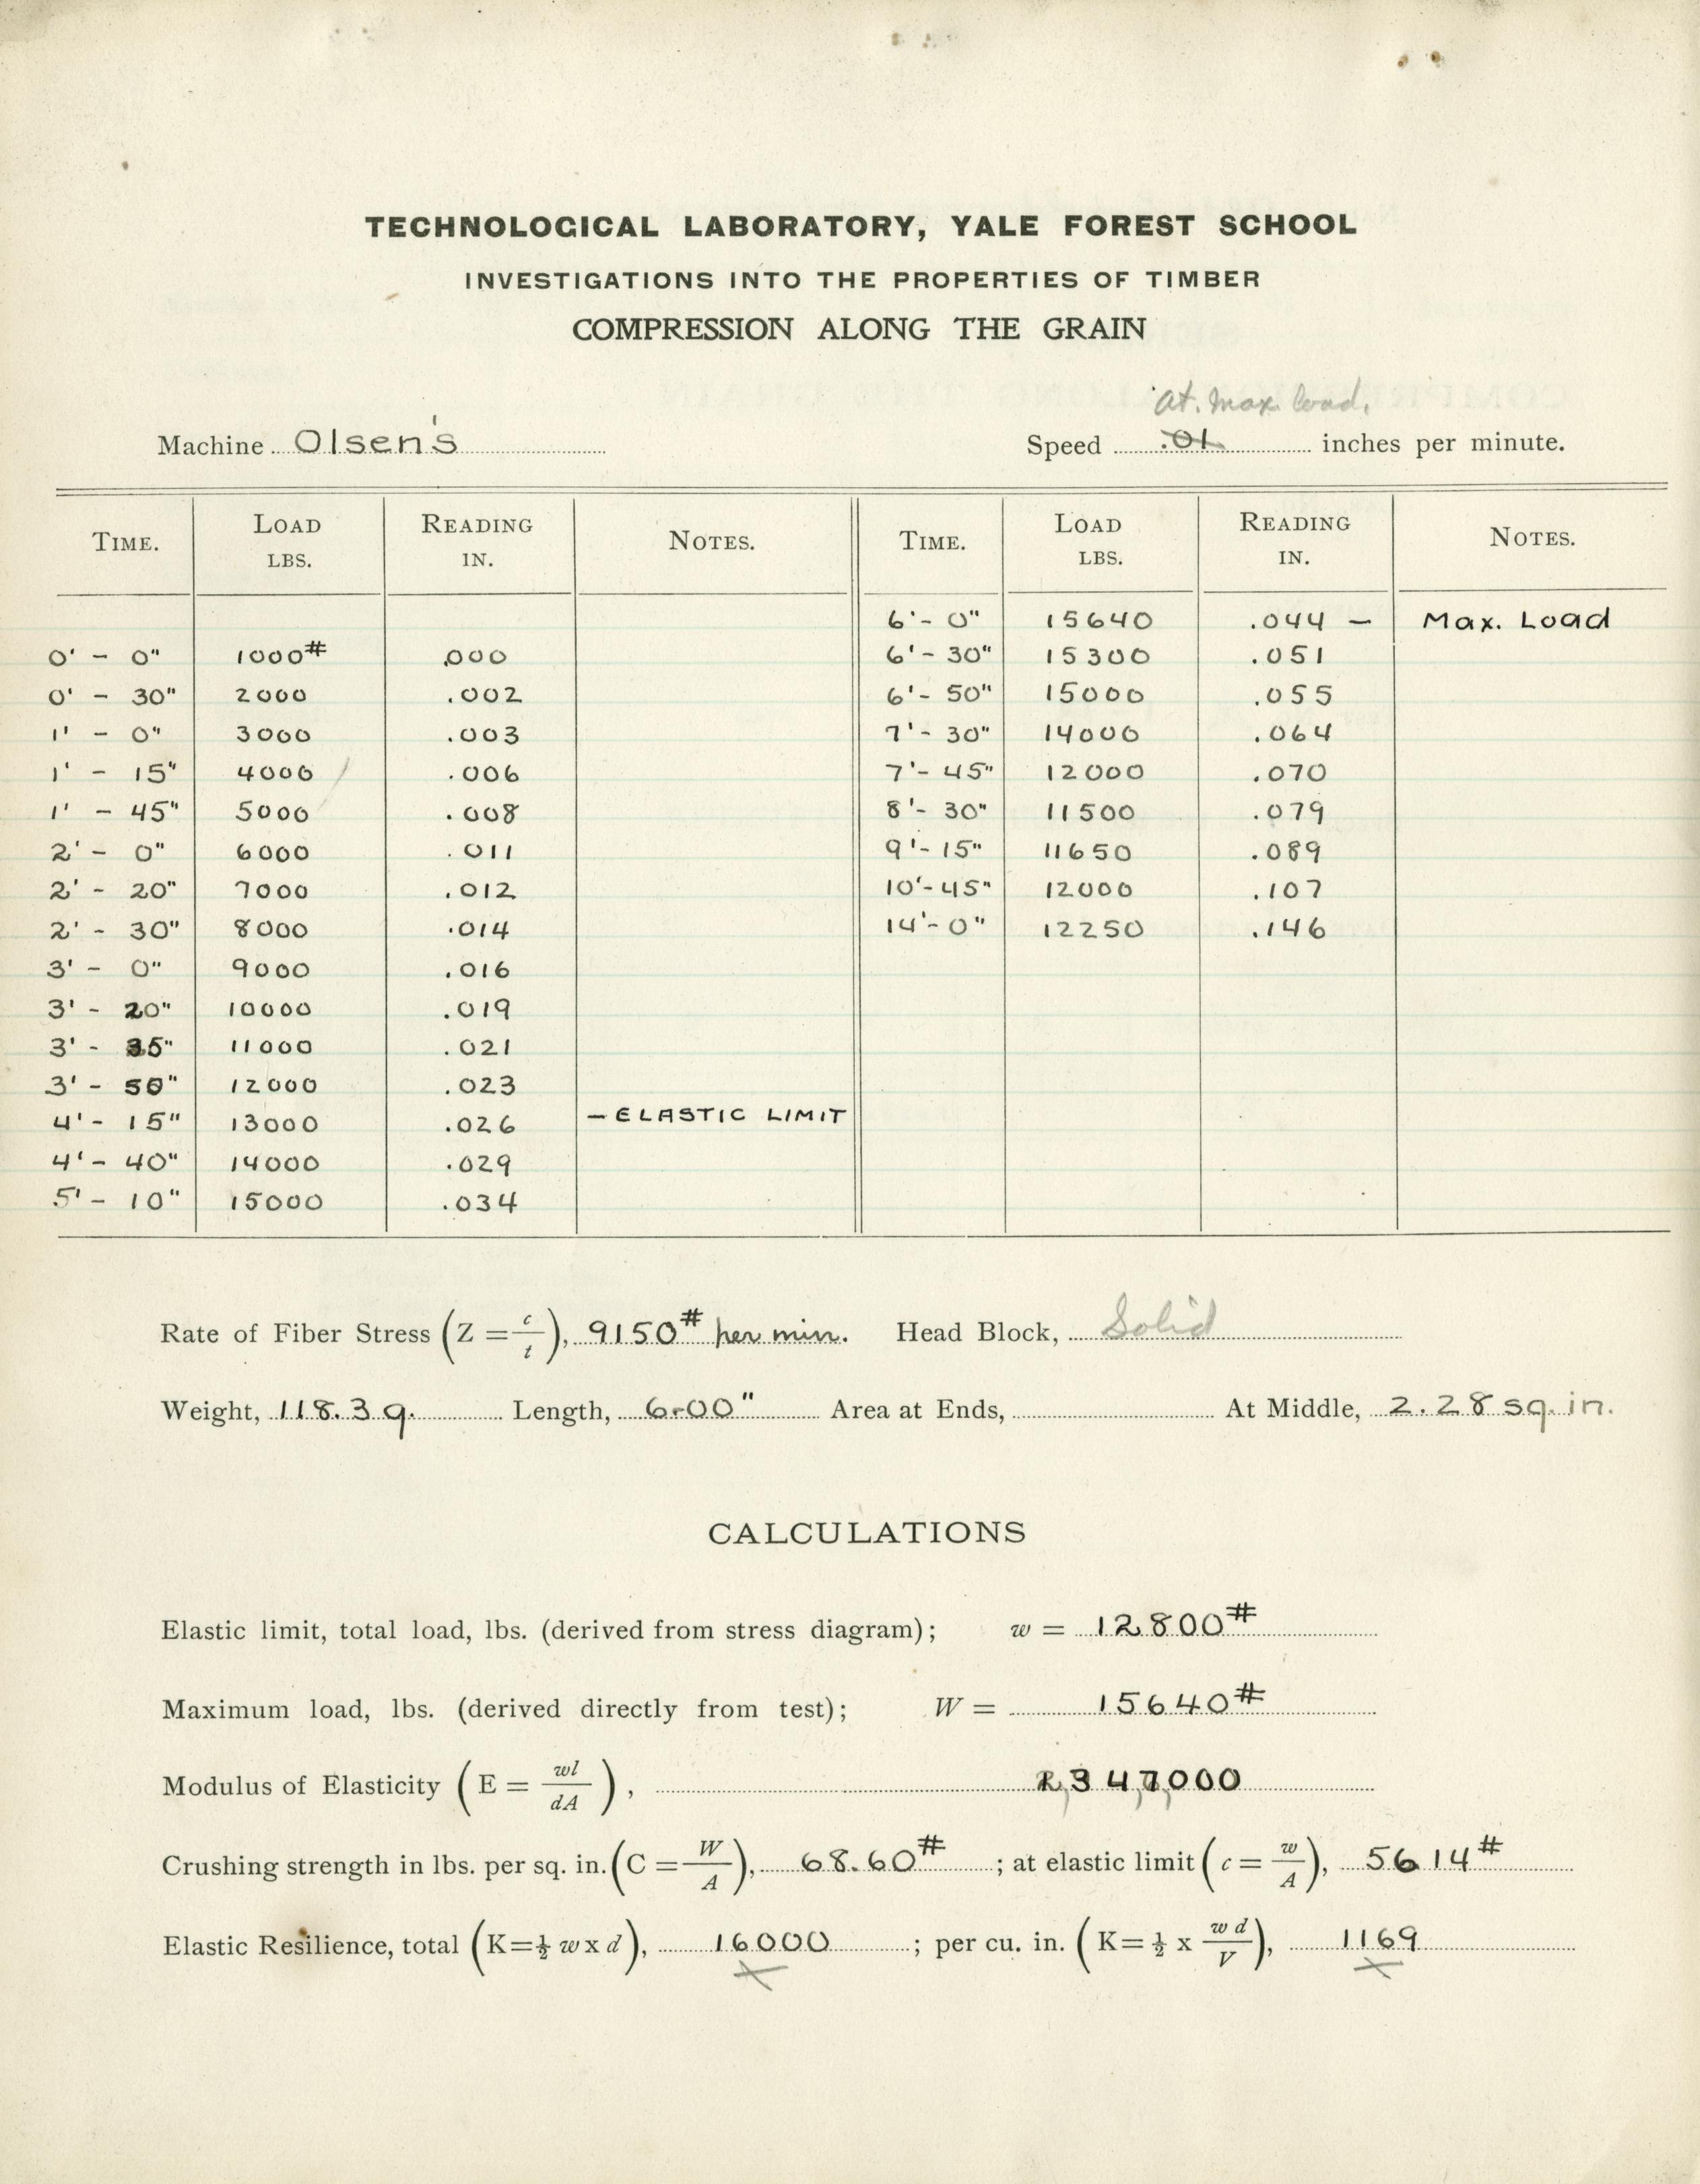 TECHNOLOGICAL LABORATORY, YALE FOREST SCHOOL
INVESTIGATIONS INTO THE PROPERTIES OF TIMBER
COMPRESSION ALONG THE GRAIN
At. max. load.
Machine Olsen's Speed .01 inches per minute.
TIME. LOAD LBS. READING IN. NOTES. TIME. LOAD LBS. READING IN. NOTES.
6'- 0" 15640 .044 — Max. Load
0' - 0" 1000# .000 6'- 30" 15300 .051
0' - 30" 2000 .002 6'- 50" 15000 .055
1' - 0" 3000 .003 7'- 30" 14000 .064
1' - 15" 4000 .006 7'- 45" 12000 .070
1' - 45" 5000 .008 8'- 30" 11500 .079
2' - 0" 6000 .011 9'- 15" 11650 .089
2' - 20" 7000 .012 10'- 45" 12000 .107
2' - 30" 8000 .014 14'- 0" 12250 .146
3' - 0" 9000 .016
3' - 20" 10000 .019
3' - 35" 11000 .021
3' - 50" 12000 .023
4' - 15" 13000 .026 — ELASTIC LIMIT
4' - 40" 14000 .029
5' - 10" 15000 .034
Rate of Fiber Stress (Z = c/t), 9150# per min. Head Block, Solid
Weight, 118.3 g. Length, 6.00" Area at Ends, At Middle, 2.28 sq. in.
CALCULATIONS
Elastic limit, total load, lbs. (derived from stress diagram); w = 12800#
Maximum load, lbs. (derived directly from test); W = 15640#
Modulus of Elasticity (E = wl/dA),
Crushing strength in lbs. per sq. in. (C = W/A), 68.60# ; at elastic limit (c = w/A), 5614#
Elastic Resilience, total (K=½ w x d), 16000 ; per cu. in. (K= ½ x w d/V), 1169